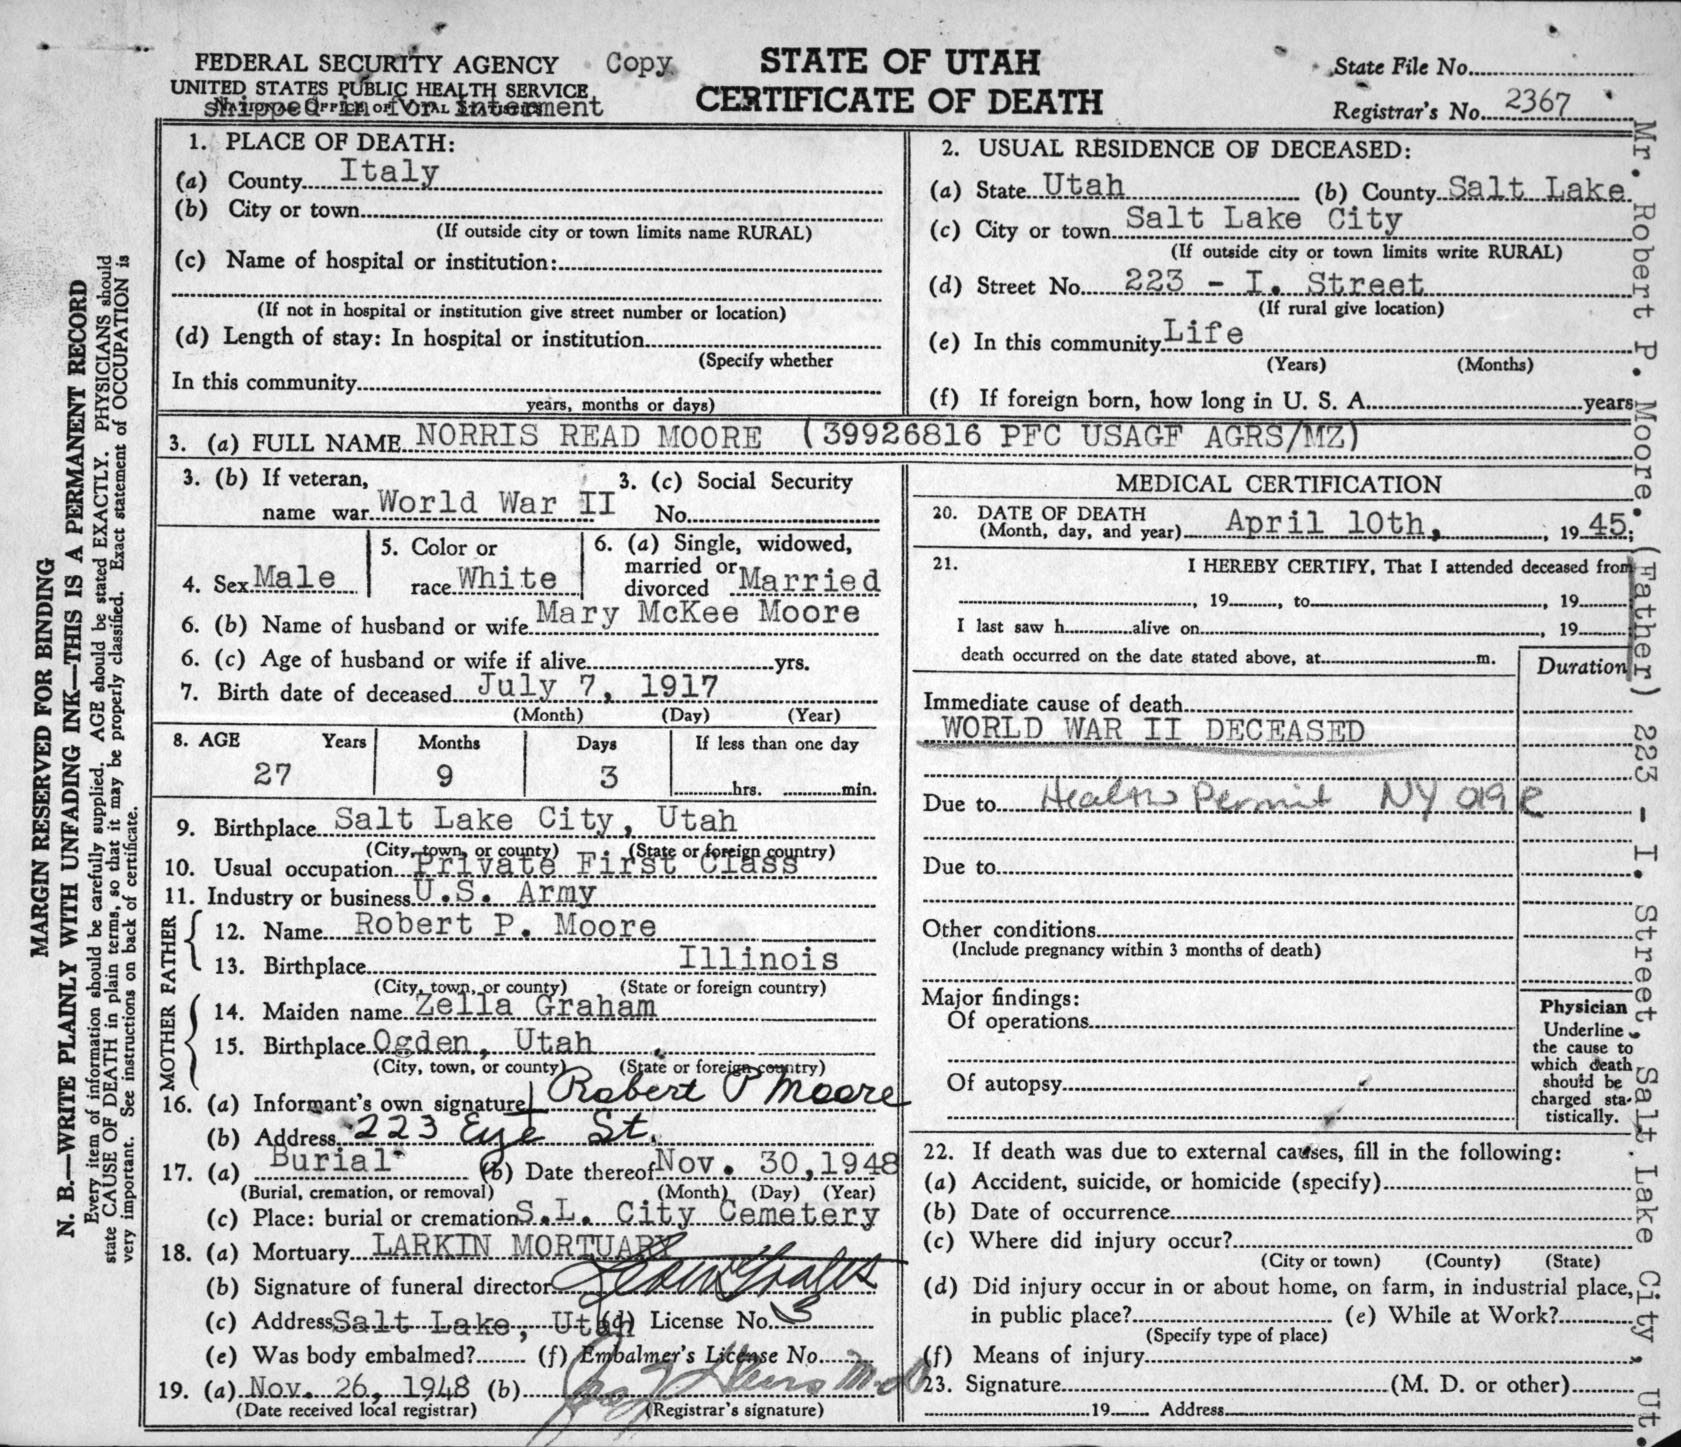 FEDERAL SECURITY AGENCY Copy
UNITED STATES PUBLIC HEALTH SERVICE
NATIONAL OFFICE OF VITAL STATISTICS
shipped in for Interment
STATE OF UTAH
CERTIFICATE OF DEATH
State File No.
Registrar's No. 2367
1. PLACE OF DEATH:
(a) County Italy
(b) City or town
(If outside city or town limits name RURAL)
(c) Name of hospital or institution:
(If not in hospital or institution give street number or location)
(d) Length of stay: In hospital or institution
(Specify whether
In this community
years, months or days)
2. USUAL RESIDENCE OF DECEASED:
(a) State Utah (b) County Salt Lake
(c) City or town Salt Lake City
(If outside city or town limits write RURAL)
(d) Street No. 223 - I. Street
(If rural give location)
(e) In this community Life
(Years) (Months)
(f) If foreign born, how long in U. S. A. years
3. (a) FULL NAME NORRIS READ MOORE (39926816 PFC USAGF AGRS/MZ)
3. (b) If veteran,
name war World War II
3. (c) Social Security
No.
4. Sex Male
5. Color or
race White
6. (a) Single, widowed,
married or
divorced Married
6. (b) Name of husband or wife Mary McKee Moore
6. (c) Age of husband or wife if alive yrs.
7. Birth date of deceased July 7, 1917
(Month) (Day) (Year)
8. AGE Years Months Days If less than one day
27 9 3 hrs. min.
9. Birthplace Salt Lake City, Utah
(City, town, or county) (State or foreign country)
10. Usual occupation Private First Class
11. Industry or business U.S. Army
FATHER
12. Name Robert P. Moore
13. Birthplace Illinois
(City, town, or county) (State or foreign country)
MOTHER
14. Maiden name Zella Graham
15. Birthplace Ogden, Utah
(City, town, or county) (State or foreign country)
16. (a) Informant's own signature Robert P Moore
(b) Address 223 Eye St.
17. (a) Burial (b) Date thereof Nov. 30, 1948
(Burial, cremation, or removal) (Month) (Day) (Year)
(c) Place: burial or cremation S.L. City Cemetery
18. (a) Mortuary LARKIN MORTUARY
(b) Signature of funeral director
(c) Address Salt Lake, Utah (d) License No. 3
(e) Was body embalmed? (f) Embalmer's License No.
19. (a) Nov. 26, 1948 (b) M.D
(Date received local registrar) (Registrar's signature)
MEDICAL CERTIFICATION
20. DATE OF DEATH
(Month, day, and year) April 10th, , 19 45;
21. I HEREBY CERTIFY, That I attended deceased from
, 19 , to , 19
I last saw h alive on , 19
death occurred on the date stated above, at m.
Duration
Immediate cause of death
WORLD WAR II DECEASED
Due to Health Permit NY 019 R
Due to
Other conditions
(Include pregnancy within 3 months of death)
Major findings:
Of operations
Of autopsy
Physician
Underline
the cause to
which death
should be
charged sta-
tistically.
22. If death was due to external causes, fill in the following:
(a) Accident, suicide, or homicide (specify)
(b) Date of occurrence
(c) Where did injury occur?
(City or town) (County) (State)
(d) Did injury occur in or about home, on farm, in industrial place,
in public place? (e) While at Work?
(Specify type of place)
(f) Means of injury
23. Signature (M. D. or other)
19 Address
MARGIN RESERVED FOR BINDING
N. B.—WRITE PLAINLY WITH UNFADING INK—THIS IS A PERMANENT RECORD
Every item of information should be carefully supplied. AGE should be stated EXACTLY. PHYSICIANS should
state CAUSE OF DEATH in plain terms, so that it may be properly classified. Exact statement of OCCUPATION is
very important. See instructions on back of certificate.
Mr. Robert P. Moore. (Father) 223 - I. Street, Salt Lake City, Ut.